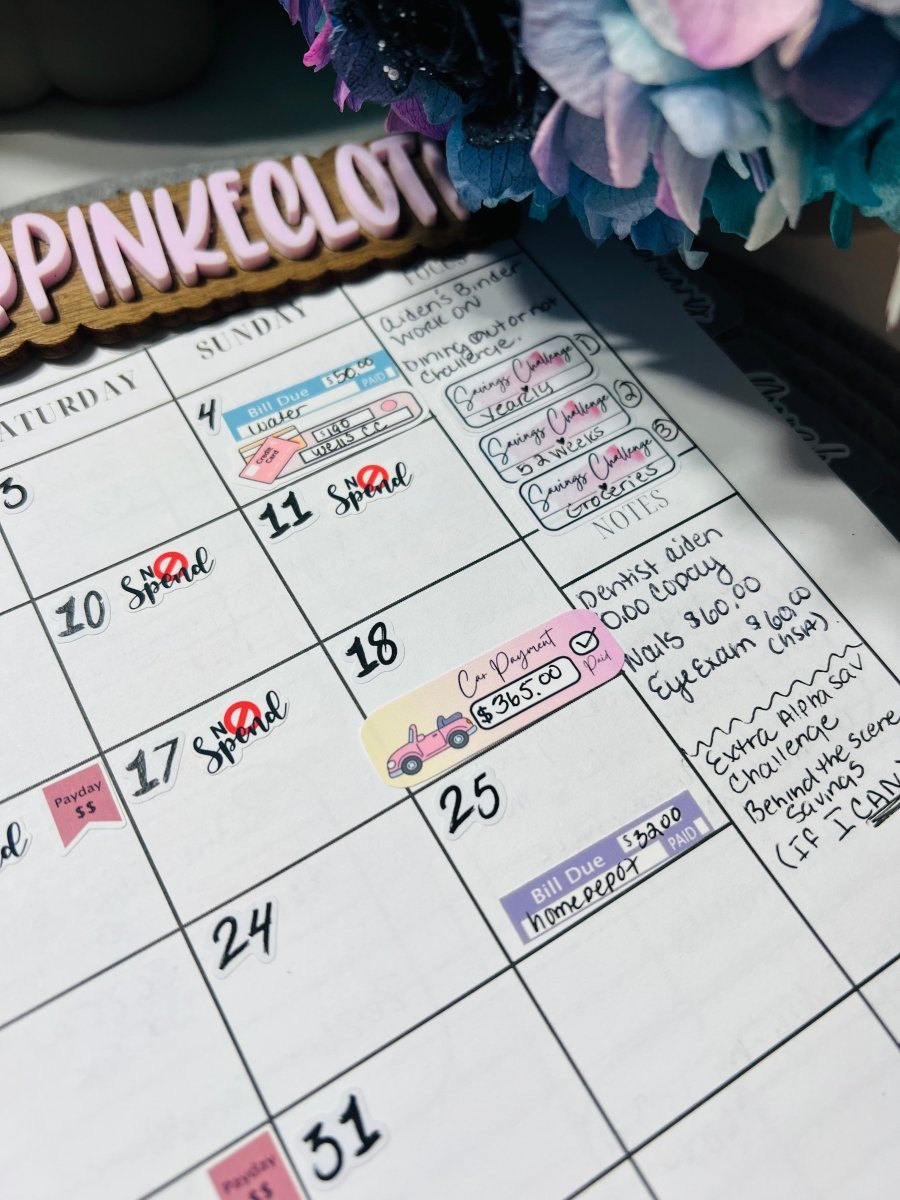 PPINKECLOT
ATURDAY
SUNDAY
FOCUS
3
4
Bill Due $50.00
water PAID
Credit Card
$190
Wells CC
10
No Spend
11
No Spend
17
No Spend
18
Car Payment
$365.00 Paid
d
Payday
$$
24
25
Bill Due $32.00
homedepot PAID
31
Payday
$$
Aiden's Binder
Work on
Dining out or not
Challenge.
Savings Challenge 1
Yearly
Savings Challenge 2
52 Weeks
Savings Challenge 3
Groceries
NOTES
Dentist aiden
0.00 Copay
Nails $60.00
Eye Exam $60.00
(HSA)
Extra Alpha Sav
Challenge
Behind the scene
Savings
(If I CAN)